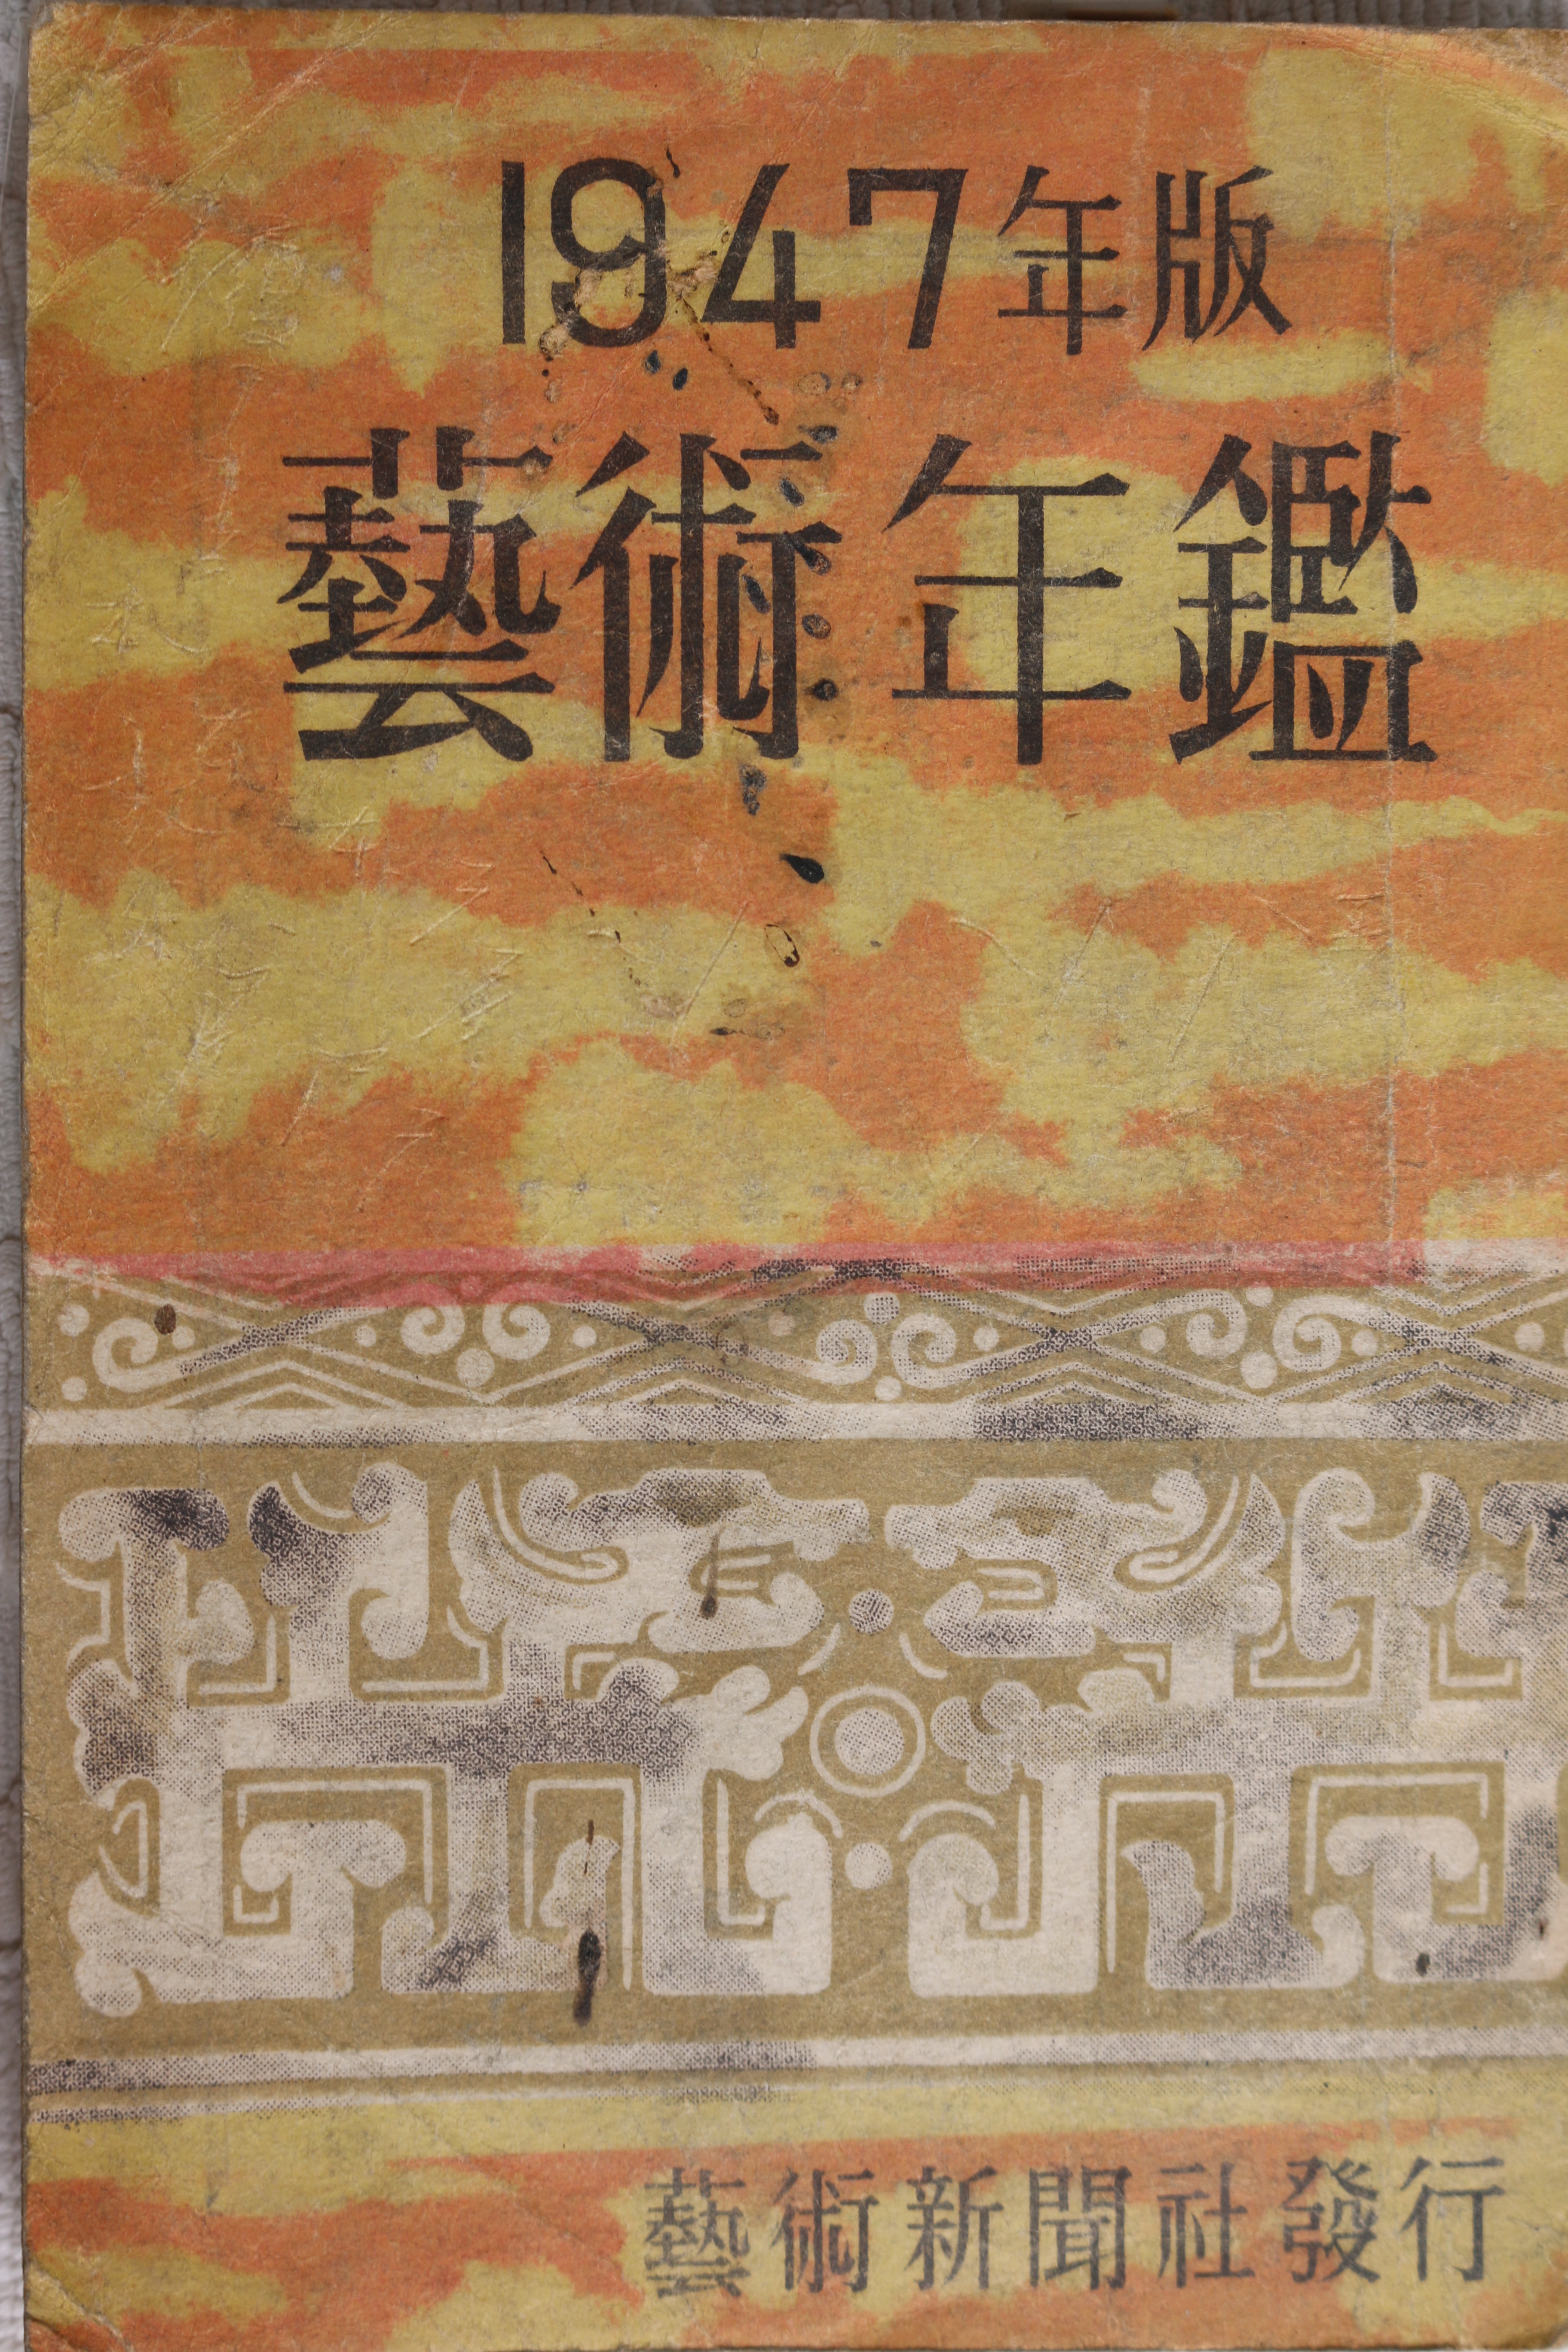 1947年版
藝術年鑑
藝術新聞社發行